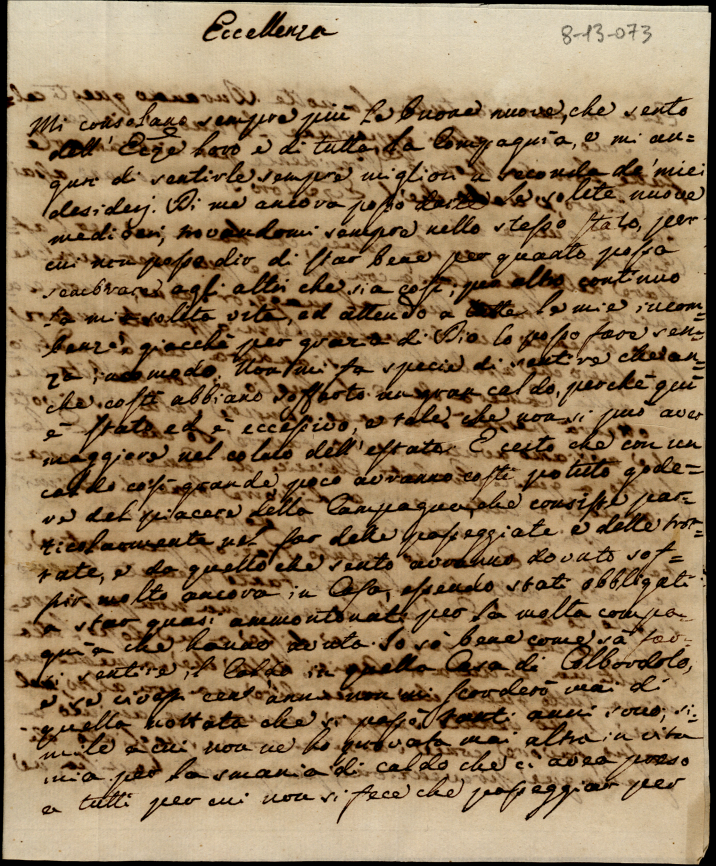 Eccellenza
8-13-073
Mi consolano sempre più le buone nuove, che sento
dell' Ecc.ze loro e di tutta la Compagnia, e mi au=
guro di sentirle sempre migliori a seconda de' miei
desiderj. Di me ancora posso darle le solite nuove
mediocri, trovandomi sempre nello stesso stato, per
cui non posso dir di star bene per quanto possa
sembrare agli altri che sia così; per altro continuo
la mia solita vita, ed attendo a tutte le mie incom=
benze, giacchè per grazia di Dio lo posso fare sen=
za incomodo. Non mi fa specie di sentire che an=
che costì abbiano sofferto un gran caldo, perchè quì
è stato ed è eccessivo, e tale, che non si può aver
maggiore nel colmo dell' estate. È certo che con un
caldo così grande poco avranno costì potuto gode=
re del piacere della Campagna, che consiste par=
ticolarmente nel far delle passeggiate e delle trot=
tate, e da quello che sento avranno dovuto sof=
frir molto ancora in Casa, essendo stati obbligati
a star quasi ammontonati per la molta compa=
gnia che hanno avuta. Io sò bene come si fac=
ci sentire il Caldo in quella Casa di Colbordolo,
e se civassi cent' anni non mi scorderò mai di
quella nottata che si passò tanti anni sono, si=
mile a cui non ne ho provata mai altra in vita
mia per la smania di caldo che ci avea preso
a tutti per cui non si fece che passeggiar per